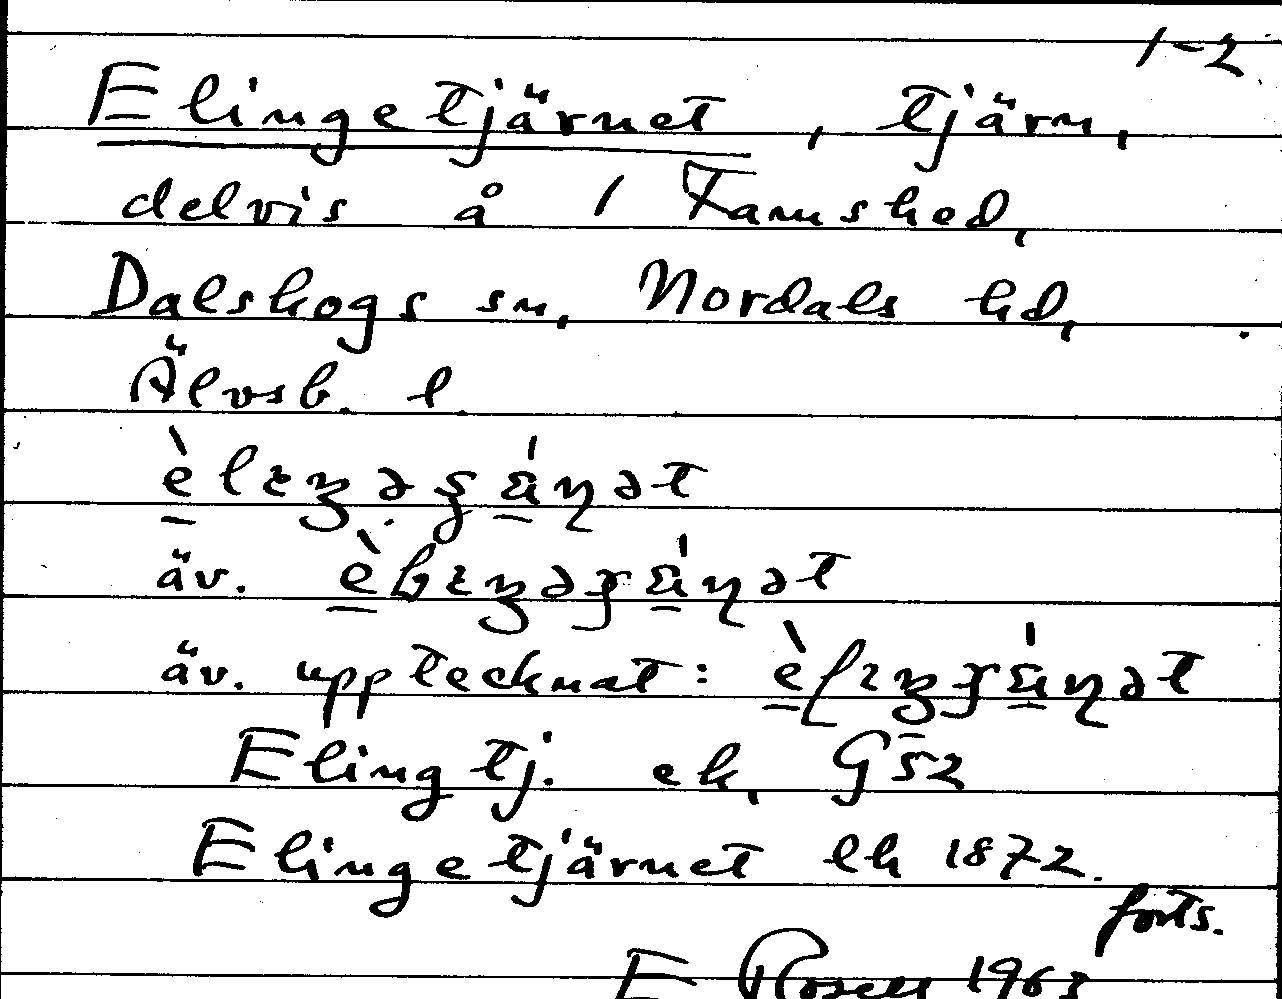 1-2
Elingetjärnet, tjärn,
delvis å 1 Ramshed,
Dalskogs sn, Nordals hd,
Älvsb. l.
äv.
äv. upptecknat:
Elingtj. ek, G52
Elingetjärnet lk 1872.
forts.
E Rosell 1963